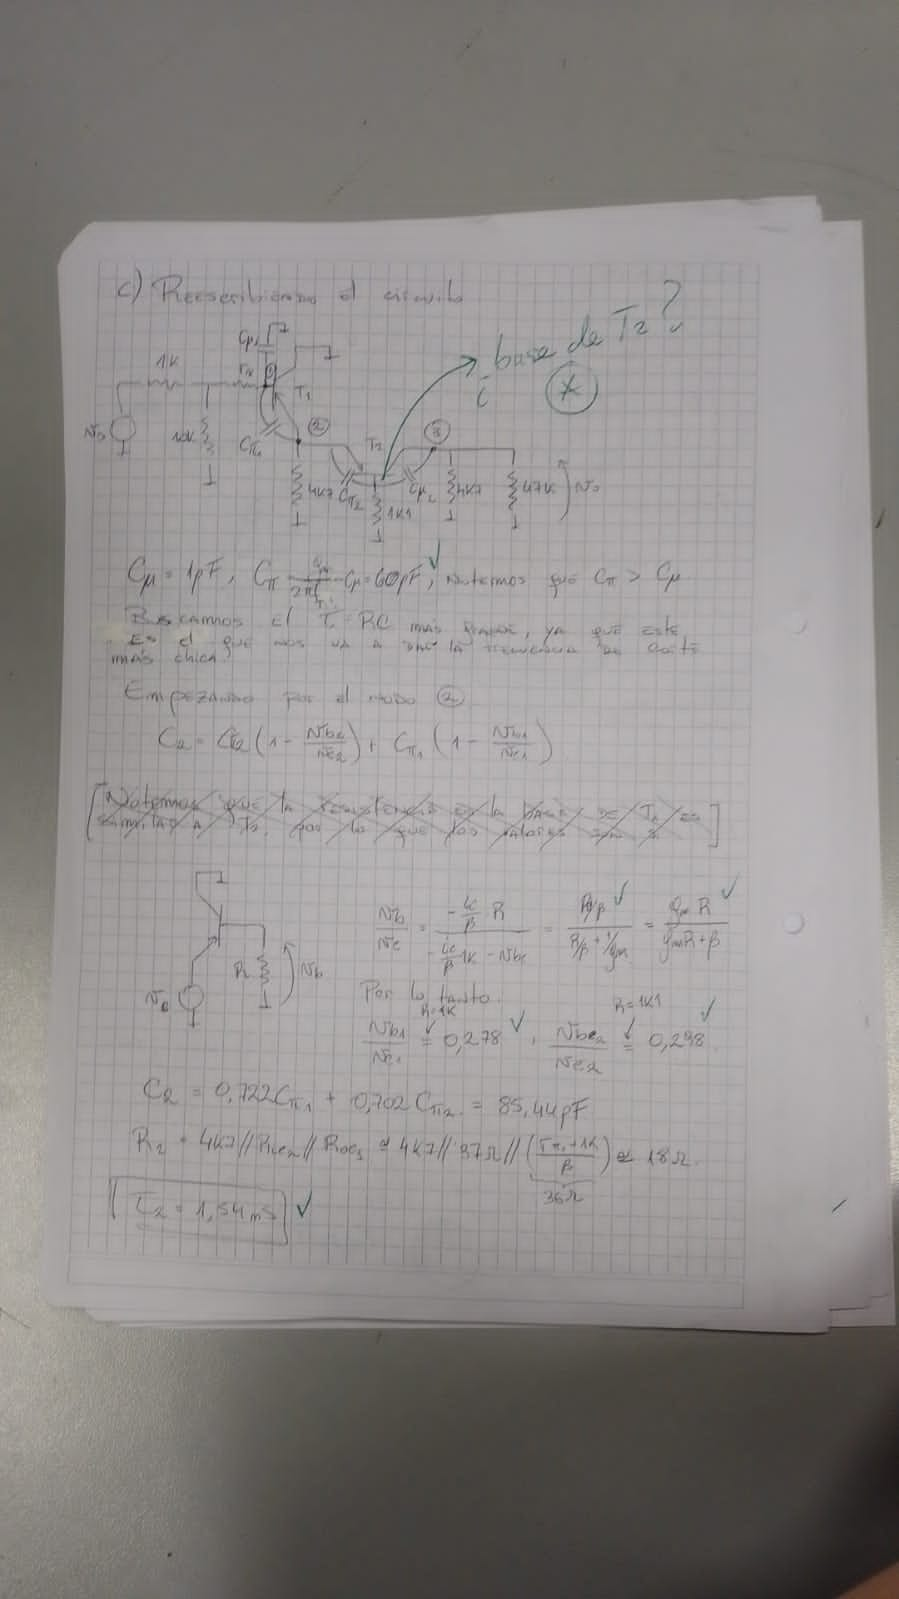 c) Reescribiendo el circuito
¿base de T2?
*
1K
Cμ1
T1
10K
Cπ1
②
T2
③
4K7
Cπ2
1K1
Cμ2
4K7
47K
Cμ = 1pF, Cπ = gm/2πfT - Cμ = 60pF, notemos que Cπ > Cμ
Buscamos el τ = RC más grande, ya que este
es el que nos va a dar la frecuencia de corte
más chica.
Empezando por el nodo ②
C2 = Cπ2 (1 - Nb2/Ne2) + Cπ1 (1 - Nb1/Ne1)
[Notemos que la resistencia en la base de T1 es
similar a T2, por lo que los valores]
R
Nb
Nb/Ne = (-ic/β R)/(-ic/β 1K - Nbe) = (R/β)/(R/β + 1/gm) = gm R/(gm R + β)
Por lo tanto
R=1K
R=1K1
Nb1/Ne1 = 0,278 , Nbe2/Ne2 = 0,298
C2 = 0,722 Cπ1 + 0,702 Cπ2 = 85,44pF
R2 = 4K7 // Rie2 // Roe1 ≅ 4K7 // 37Ω // ((rπ1 + 1K)/β) ≅ 18Ω
36Ω
τ2 = 1,54 mS